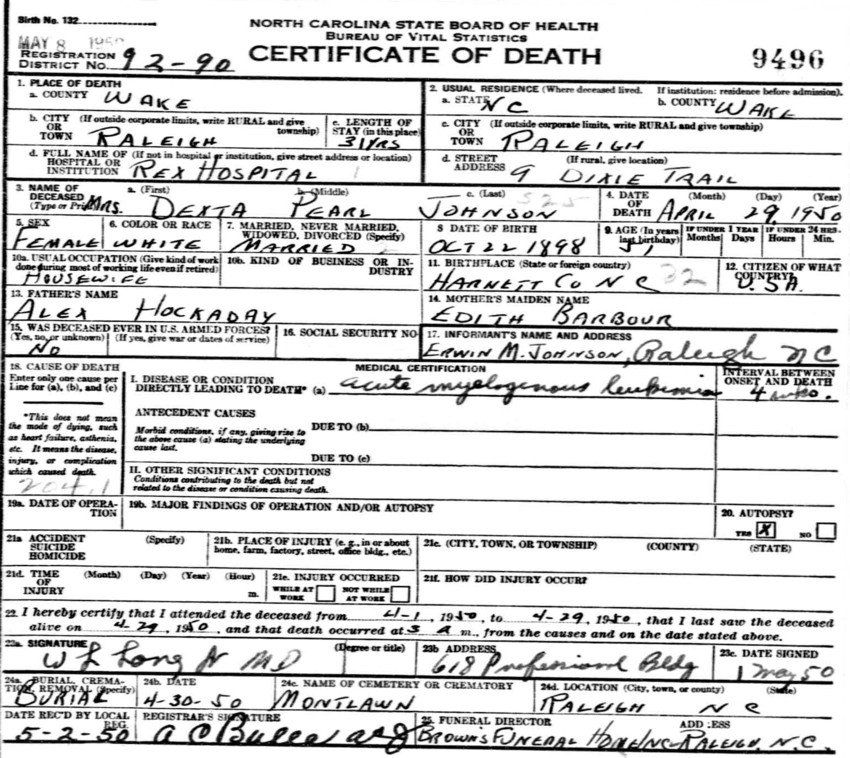 Birth No. 132
NORTH CAROLINA STATE BOARD OF HEALTH
BUREAU OF VITAL STATISTICS
MAY 8 1950
REGISTRATION DISTRICT No. 92-90
CERTIFICATE OF DEATH
9496
1. PLACE OF DEATH
a. COUNTY WAKE
2. USUAL RESIDENCE (Where deceased lived. If institution: residence before admission).
a. STATE NC b. COUNTY WAKE
b. CITY OR TOWN (If outside corporate limits, write RURAL and give township) RALEIGH
c. LENGTH OF STAY (in this place) 31 YRS
c. CITY OR TOWN (If outside corporate limits, write RURAL and give township) RALEIGH
d. FULL NAME OF HOSPITAL OR INSTITUTION (If not in hospital or institution, give street address or location) REX HOSPITAL 1
d. STREET ADDRESS (If rural, give location) 9 DIXIE TRAIL
3. NAME OF DECEASED (Type or Print) a. (First) b. (Middle) c. (Last)
MRS. DEXTA PEARL JOHNSON 525
4. DATE OF DEATH (Month) (Day) (Year) APRIL 29 1950
5. SEX FEMALE
6. COLOR OR RACE WHITE
7. MARRIED, NEVER MARRIED, WIDOWED, DIVORCED (Specify) MARRIED
8 DATE OF BIRTH OCT 22 1898
9. AGE (In years last birthday) 51
IF UNDER 1 YEAR Months Days
IF UNDER 24 HRS. Hours Min.
10a. USUAL OCCUPATION (Give kind of work done during most of working life even if retired) HOUSEWIFE
10b. KIND OF BUSINESS OR INDUSTRY
11. BIRTHPLACE (State or foreign country) HARNETT CO N C 32
12. CITIZEN OF WHAT COUNTRY? U.S.A.
13. FATHER'S NAME ALEX HOCKADAY
14. MOTHER'S MAIDEN NAME EDITH BARBOUR
15. WAS DECEASED EVER IN U.S. ARMED FORCES? (Yes, no, or unknown) (If yes, give war or dates of service) NO
16. SOCIAL SECURITY NO
17. INFORMANT'S NAME AND ADDRESS ERWIN M. JOHNSON, Raleigh NC
18. CAUSE OF DEATH
Enter only one cause per Line for (a), (b), and (c)
MEDICAL CERTIFICATION
INTERVAL BETWEEN ONSET AND DEATH
I. DISEASE OR CONDITION DIRECTLY LEADING TO DEATH* (a) acute myelogenous leukemia 4
*This does not mean the mode of dying, such as heart failure, asthenia, etc. It means the disease, injury, or complication which caused death.
204.1
ANTECEDENT CAUSES
Morbid conditions, if any, giving rise to the above cause (a) stating the underlying cause last.
DUE TO (b)
DUE TO (c)
II. OTHER SIGNIFICANT CONDITIONS
Conditions contributing to the death but not related to the disease or condition causing death.
19a. DATE OF OPERATION
19b. MAJOR FINDINGS OF OPERATION AND/OR AUTOPSY
20. AUTOPSY?
YES X NO
21a ACCIDENT SUICIDE HOMICIDE (Specify)
21b. PLACE OF INJURY (e. g., in or about home, farm, factory, street, office bldg., etc.)
21c. (CITY, TOWN, OR TOWNSHIP) (COUNTY) (STATE)
21d. TIME OF INJURY (Month) (Day) (Year) (Hour) m.
21e. INJURY OCCURRED WHILE AT WORK NOT WHILE AT WORK
21f. HOW DID INJURY OCCUR?
22. I hereby certify that I attended the deceased from 4-1, 1950, to 4-29, 1950, that I last saw the deceased
alive on 4-29, 1950, and that death occurred at 5 a m., from the causes and on the date stated above.
23a. SIGNATURE (Degree or title) W L Long Jr MD
23b ADDRESS 618 Professional Bldg
23c. DATE SIGNED 1 May 50
24a. BURIAL, CREMATION, REMOVAL (Specify) BURIAL
24b. DATE 4-30-50
24c. NAME OF CEMETERY OR CREMATORY MONTLAWN
24d. LOCATION (City, town, or county) (State) RALEIGH N C
DATE REC'D BY LOCAL REG. 5-2-50
REGISTRAR'S SIGNATURE A C
25. FUNERAL DIRECTOR ADDRESS BROWN'S FUNERAL HOME INC-RALEIGH, N.C.